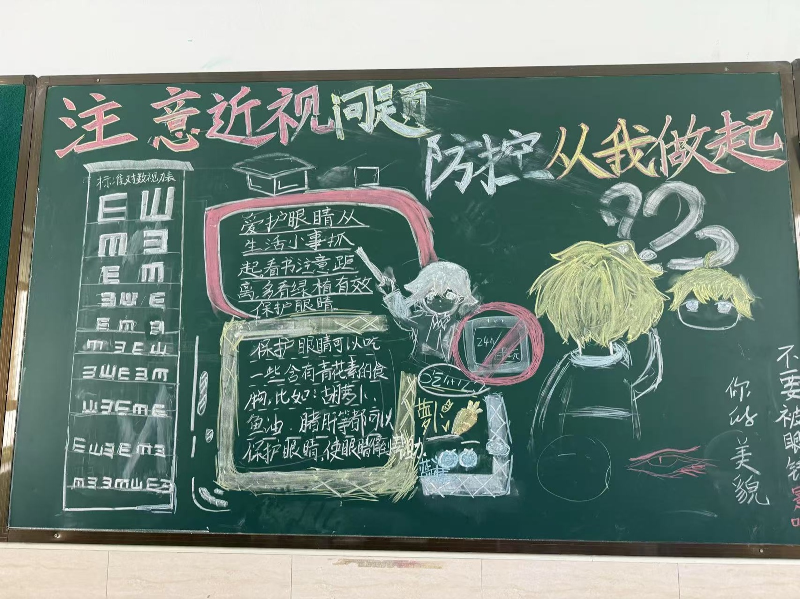 注意近视问题
防控从我做起
标准对数视力表
爱护眼睛从
生活小事抓
起看书注意距
离,多看绿植有效
保护眼睛
保护眼睛可以吃
一些含有青花素的食
物,比如:胡萝卜、
鱼油、猪肝等都可以
保护眼睛,使眼睛得到帮助.
萝卜
蓝莓
不要被眼镜影响
你的美貌